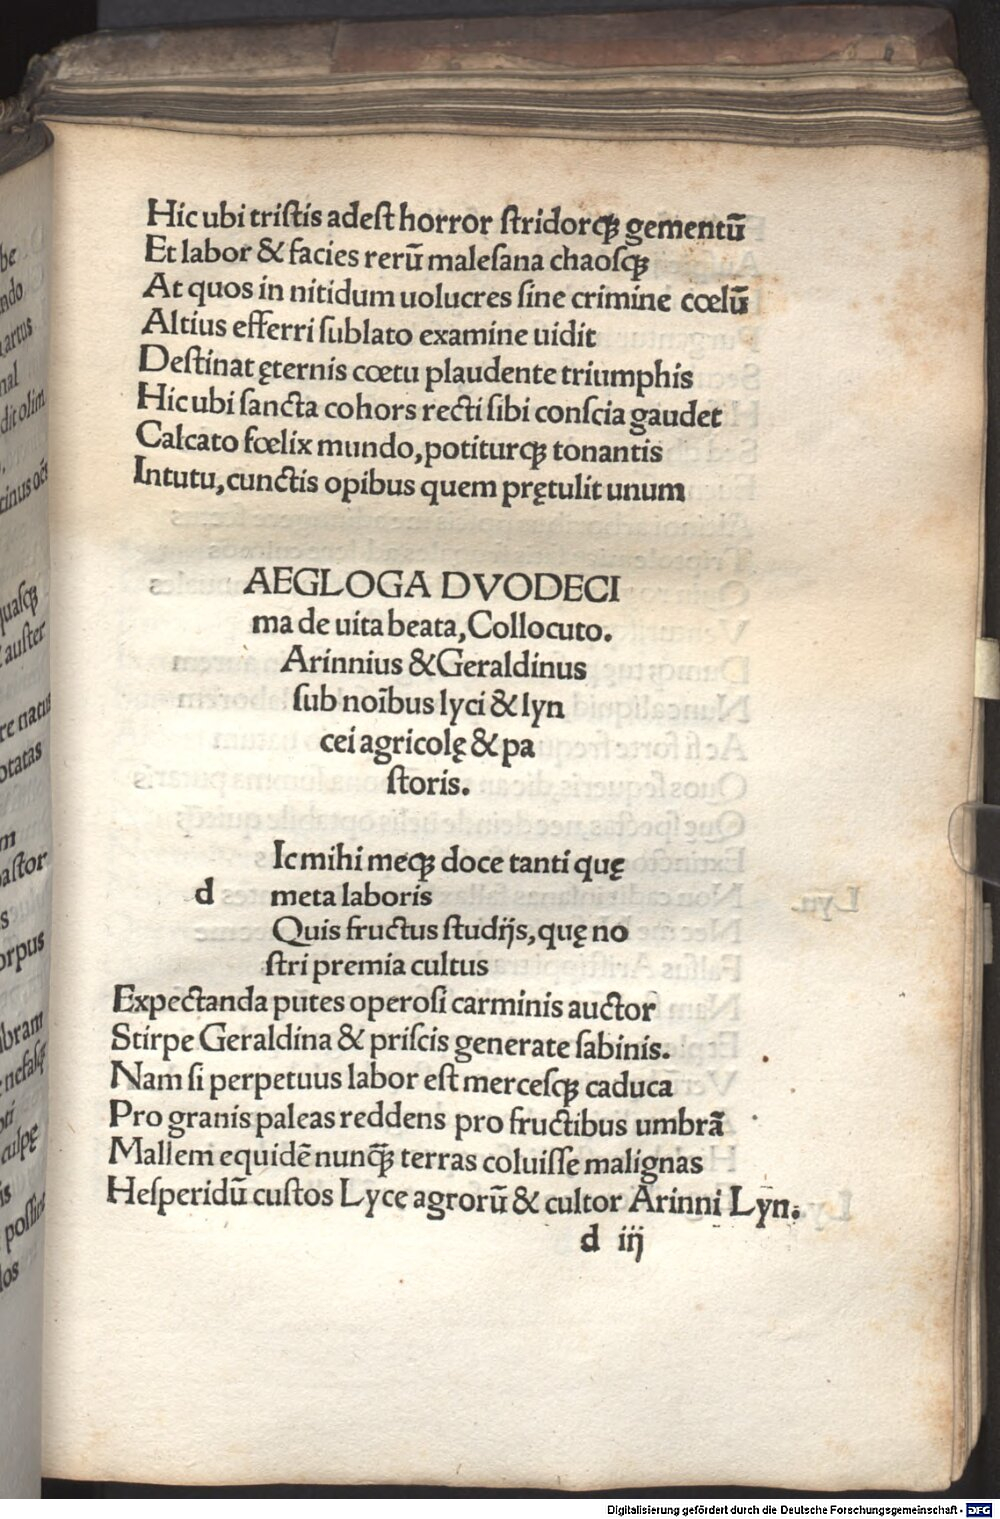 Hic ubi tristis adest horror stridorqꝫ gementū
Et labor & facies rerū malesana chaosqꝫ
At quos in nitidum uolucres sine crimine cœlū
Altius efferri sublato examine uidit
Destinat ęternis cœtu plaudente triumphis
Hic ubi sancta cohors recti sibi conscia gaudet
Calcato fœlix mundo, potiturqꝫ tonantis
Intutu, cunctis opibus quem prętulit unum
AEGLOGA DVODECI
ma de uita beata, Collocuto.
Arinnius & Geraldinus
sub noībus lyci & lyn
cei agricolę & pa
storis.
Ic mihi meqꝫ doce tanti quę
d meta laboris
Quis fructus studijs, quę no
stri premia cultus
Expectanda putes operosi carminis auctor
Stirpe Geraldina & priscis generate sabinis.
Nam si perpetuus labor est mercesqꝫ caduca
Pro granis paleas reddens pro fructibus umbrā
Mallem equidē nunqꝫ̄ terras coluisse malignas
Hesperidū custos Lyce agrorū & cultor Arinni Lyn.
d iij
Digitalisierung gefördert durch die Deutsche Forschungsgemeinschaft - DFG